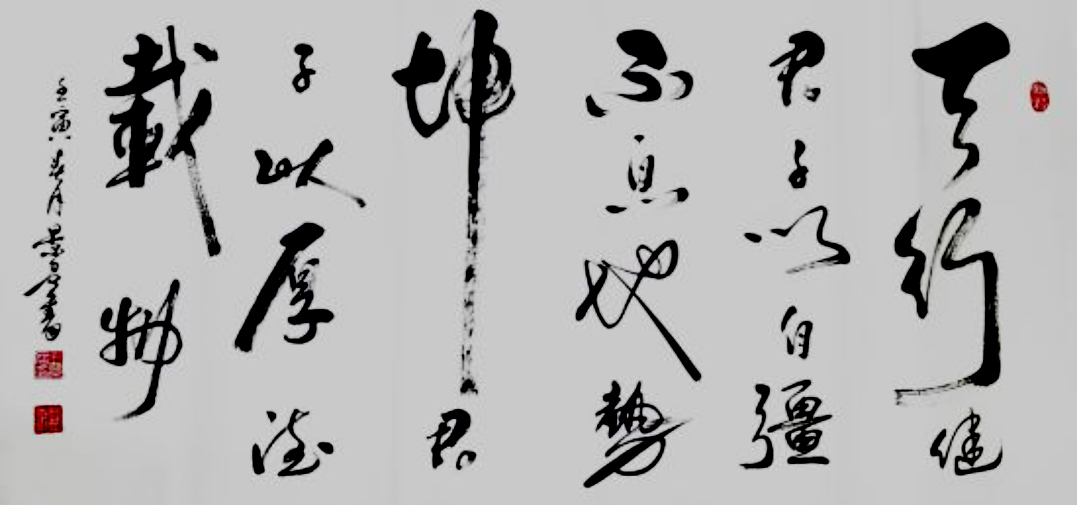 天行健
君子以自彊
不息地勢
坤君
子以厚德
載物
壬寅春月景書